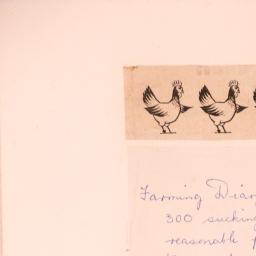 Farming Diar
300 sucking
reasonable p